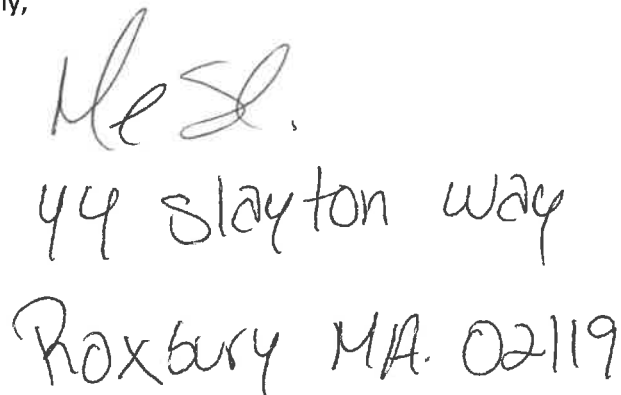 ly,
44 Slayton Way
Roxbury MA. 02119